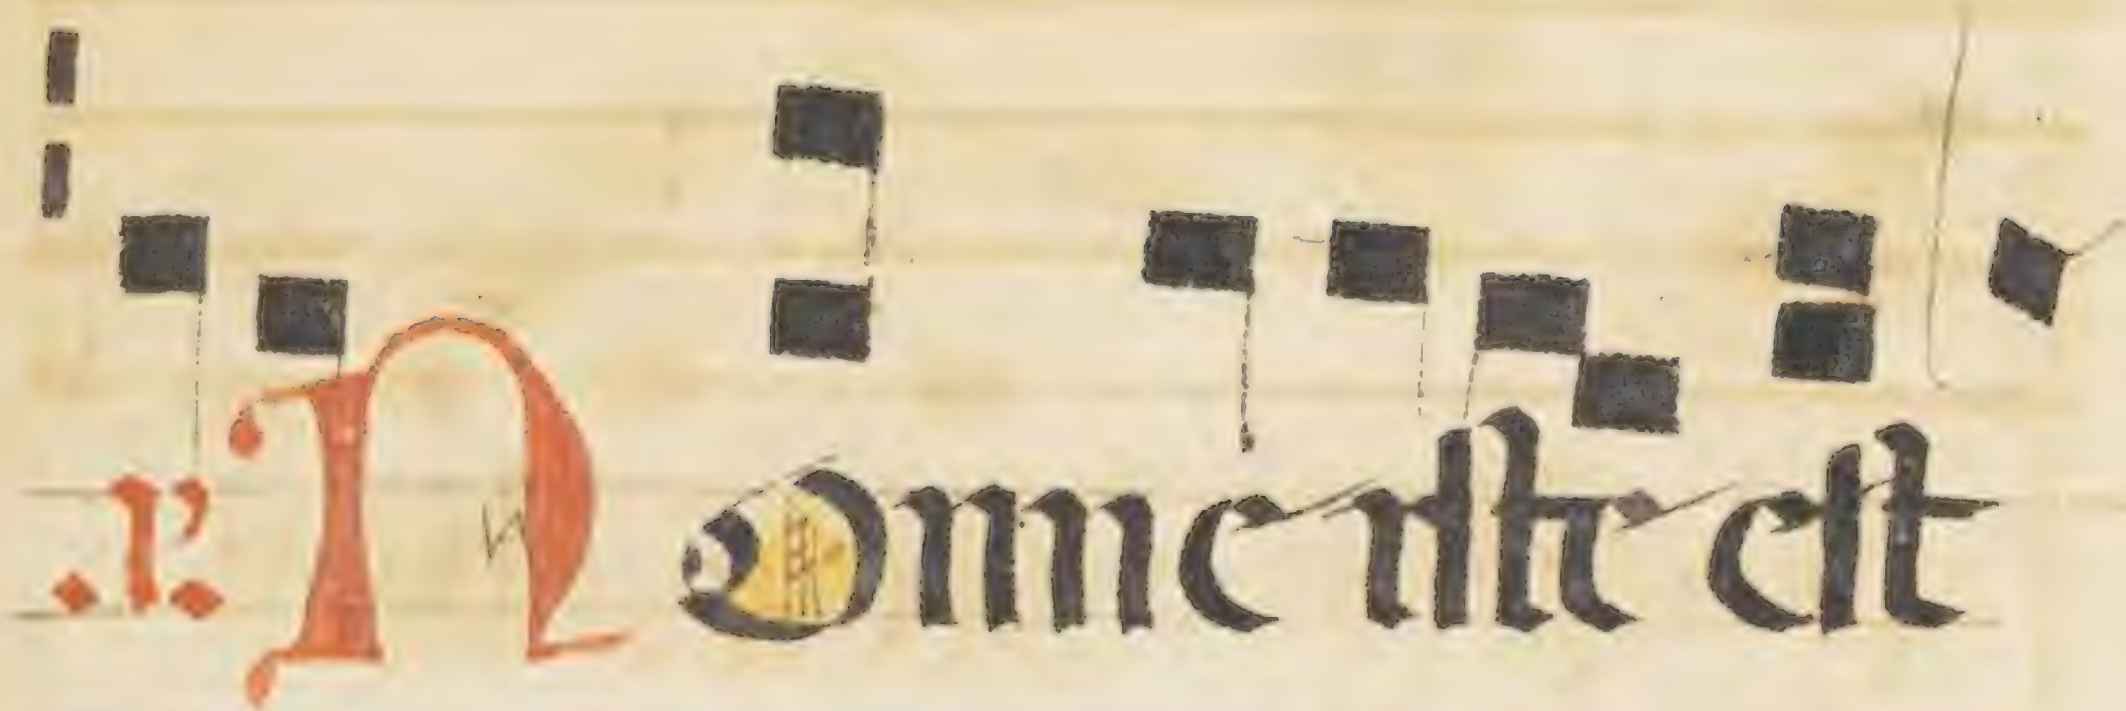 .r. NOnne iste est